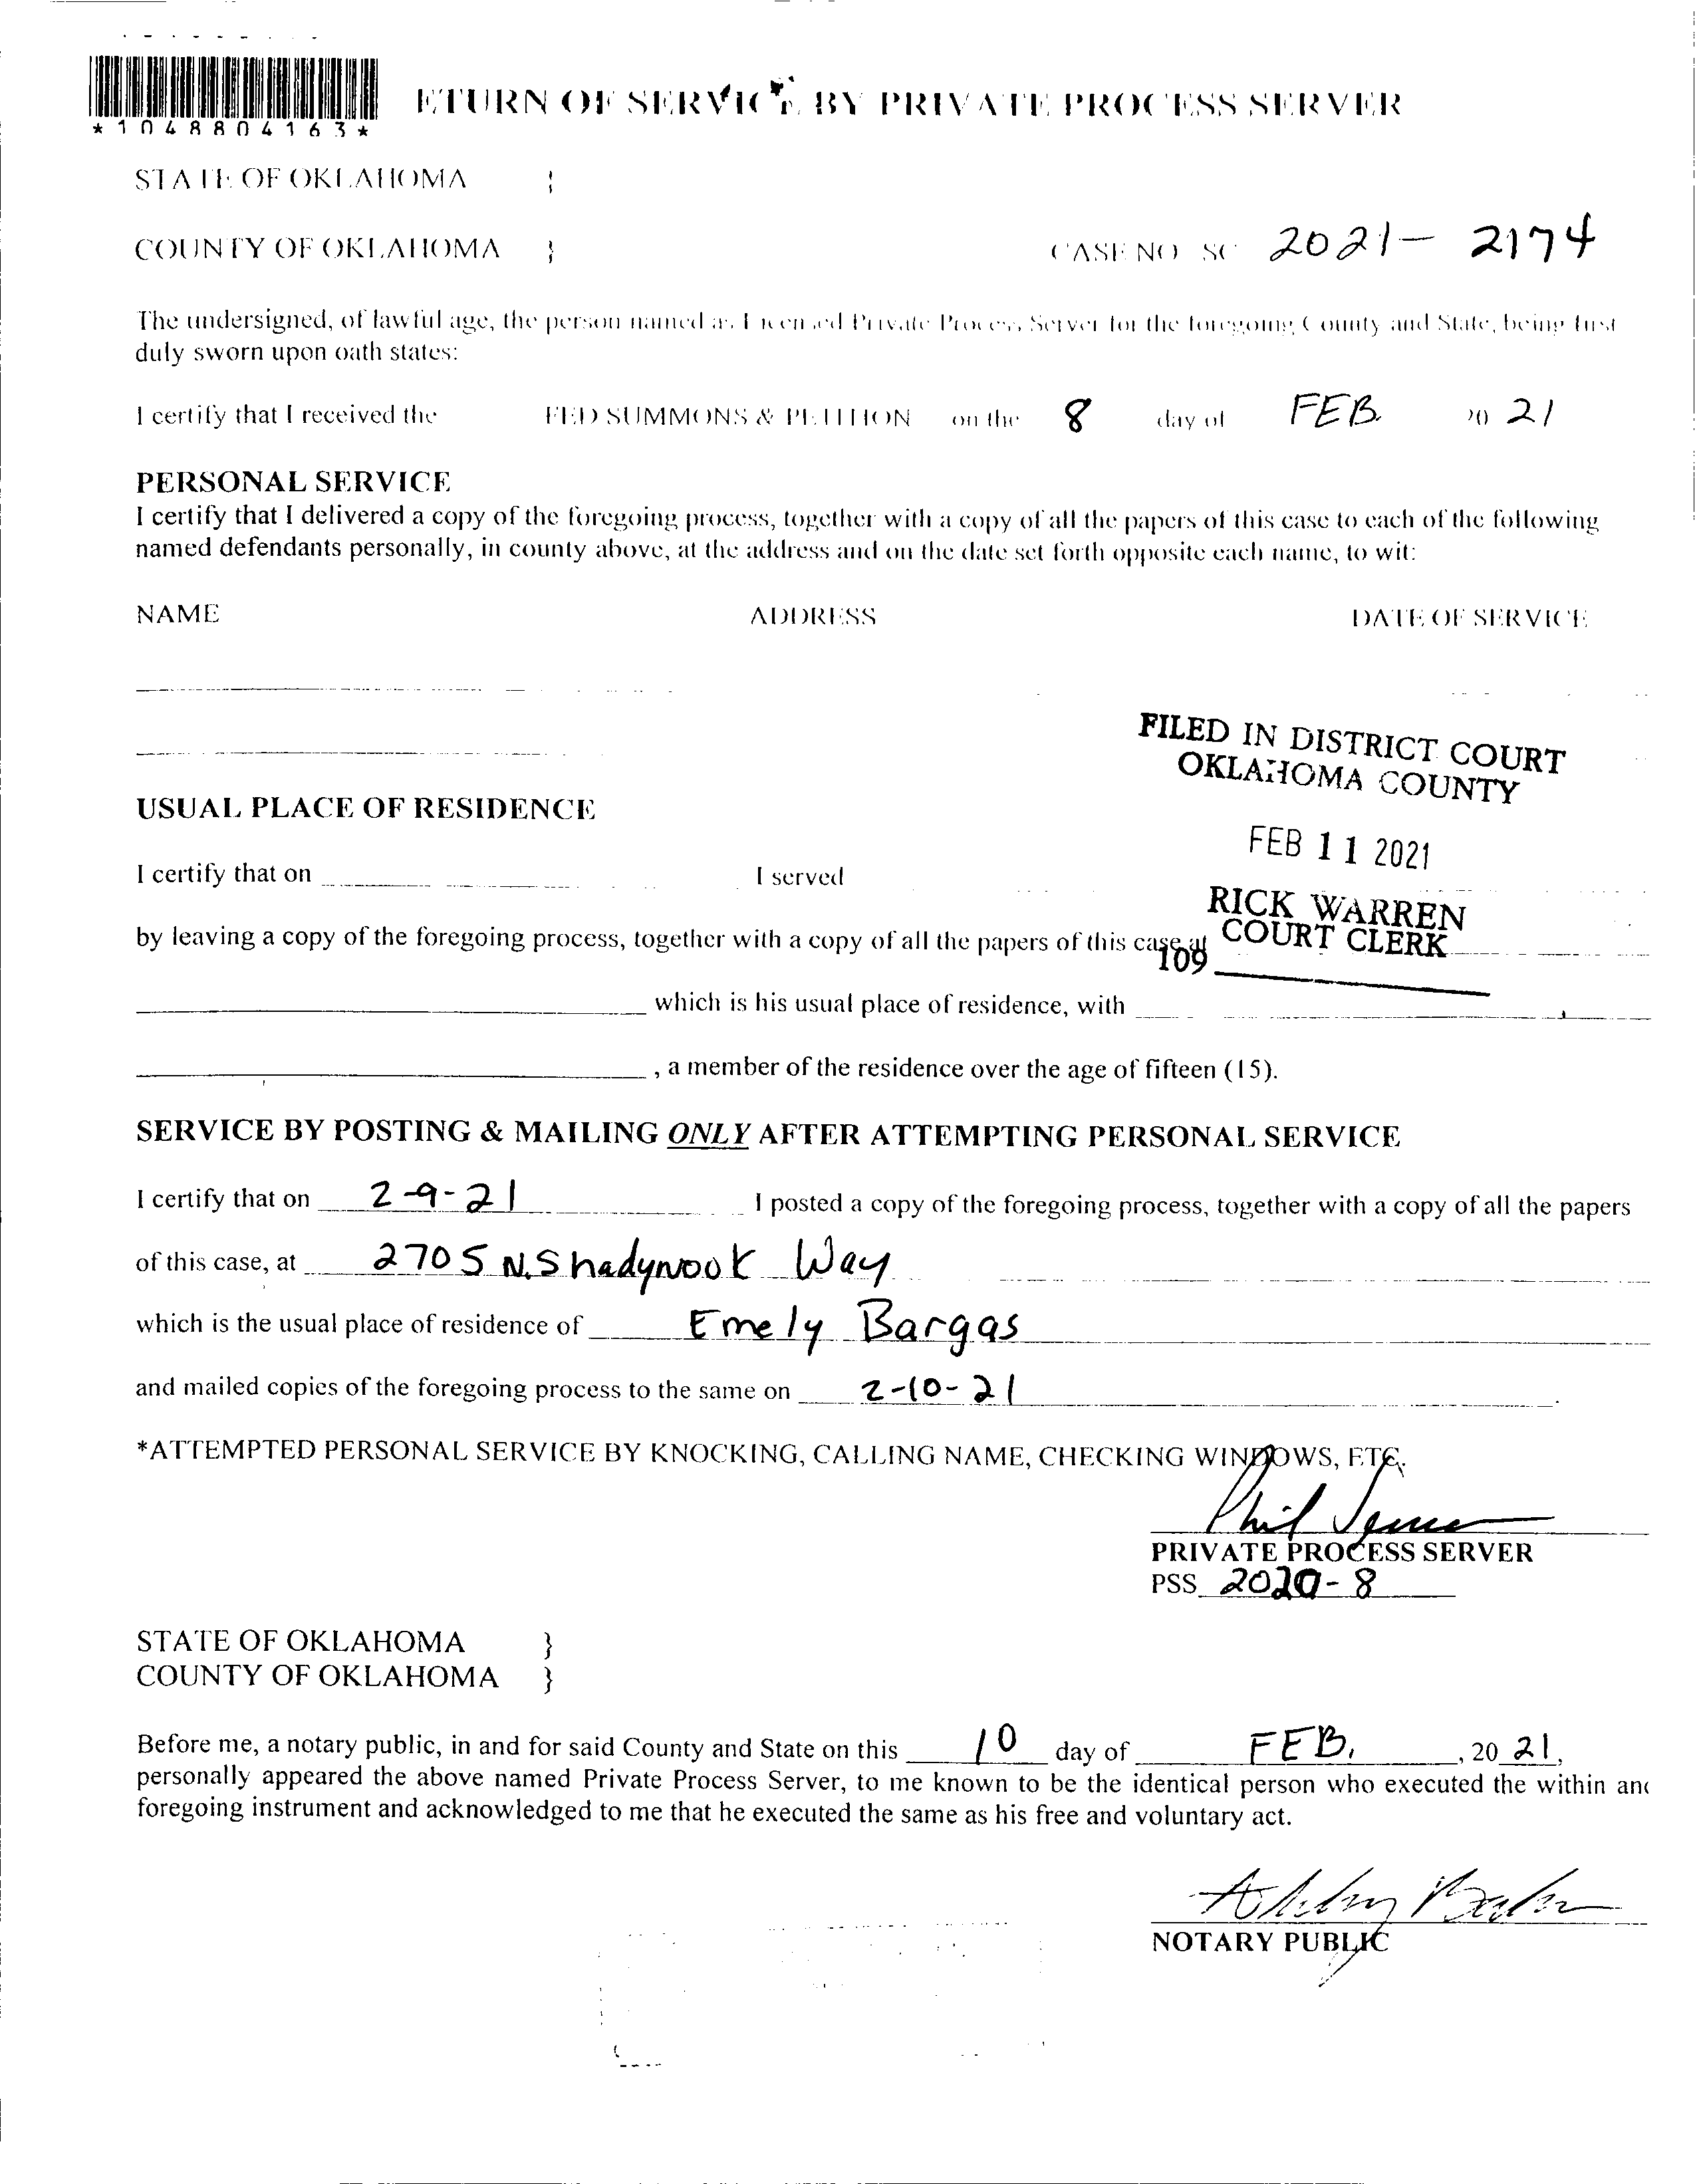 *1048804163*
ETURN OF SERVICE BY PRIVATE PROCESS SERVER
STATE OF OKLAHOMA }
COUNTY OF OKLAHOMA } CASE NO SC 2021- 2174
The undersigned, of lawful age, the person named as Licensed Private Process Server for the foregoing County and State, being first
duly sworn upon oath states:
I certify that I received the FED SUMMONS & PETITION on the 8 day of FEB. 20 21
PERSONAL SERVICE
I certify that I delivered a copy of the foregoing process, together with a copy of all the papers of this case to each of the following
named defendants personally, in county above, at the address and on the date set forth opposite each name, to wit:
NAME ADDRESS DATE OF SERVICE
FILED IN DISTRICT COURT
OKLAHOMA COUNTY
FEB 11 2021
RICK WARREN
COURT CLERK
109
USUAL PLACE OF RESIDENCE
I certify that on I served
by leaving a copy of the foregoing process, together with a copy of all the papers of this case at
which is his usual place of residence, with
, a member of the residence over the age of fifteen (15).
SERVICE BY POSTING & MAILING ONLY AFTER ATTEMPTING PERSONAL SERVICE
I certify that on 2-9-21 I posted a copy of the foregoing process, together with a copy of all the papers
of this case, at 2705 N. Shadynook Way
which is the usual place of residence of Emely Bargas
and mailed copies of the foregoing process to the same on 2-10-21.
*ATTEMPTED PERSONAL SERVICE BY KNOCKING, CALLING NAME, CHECKING WINDOWS, ETC.
Phil
PRIVATE PROCESS SERVER
PSS 2020-8
STATE OF OKLAHOMA }
COUNTY OF OKLAHOMA }
Before me, a notary public, in and for said County and State on this 10 day of FEB. , 20 21,
personally appeared the above named Private Process Server, to me known to be the identical person who executed the within and
foregoing instrument and acknowledged to me that he executed the same as his free and voluntary act.
NOTARY PUBLIC